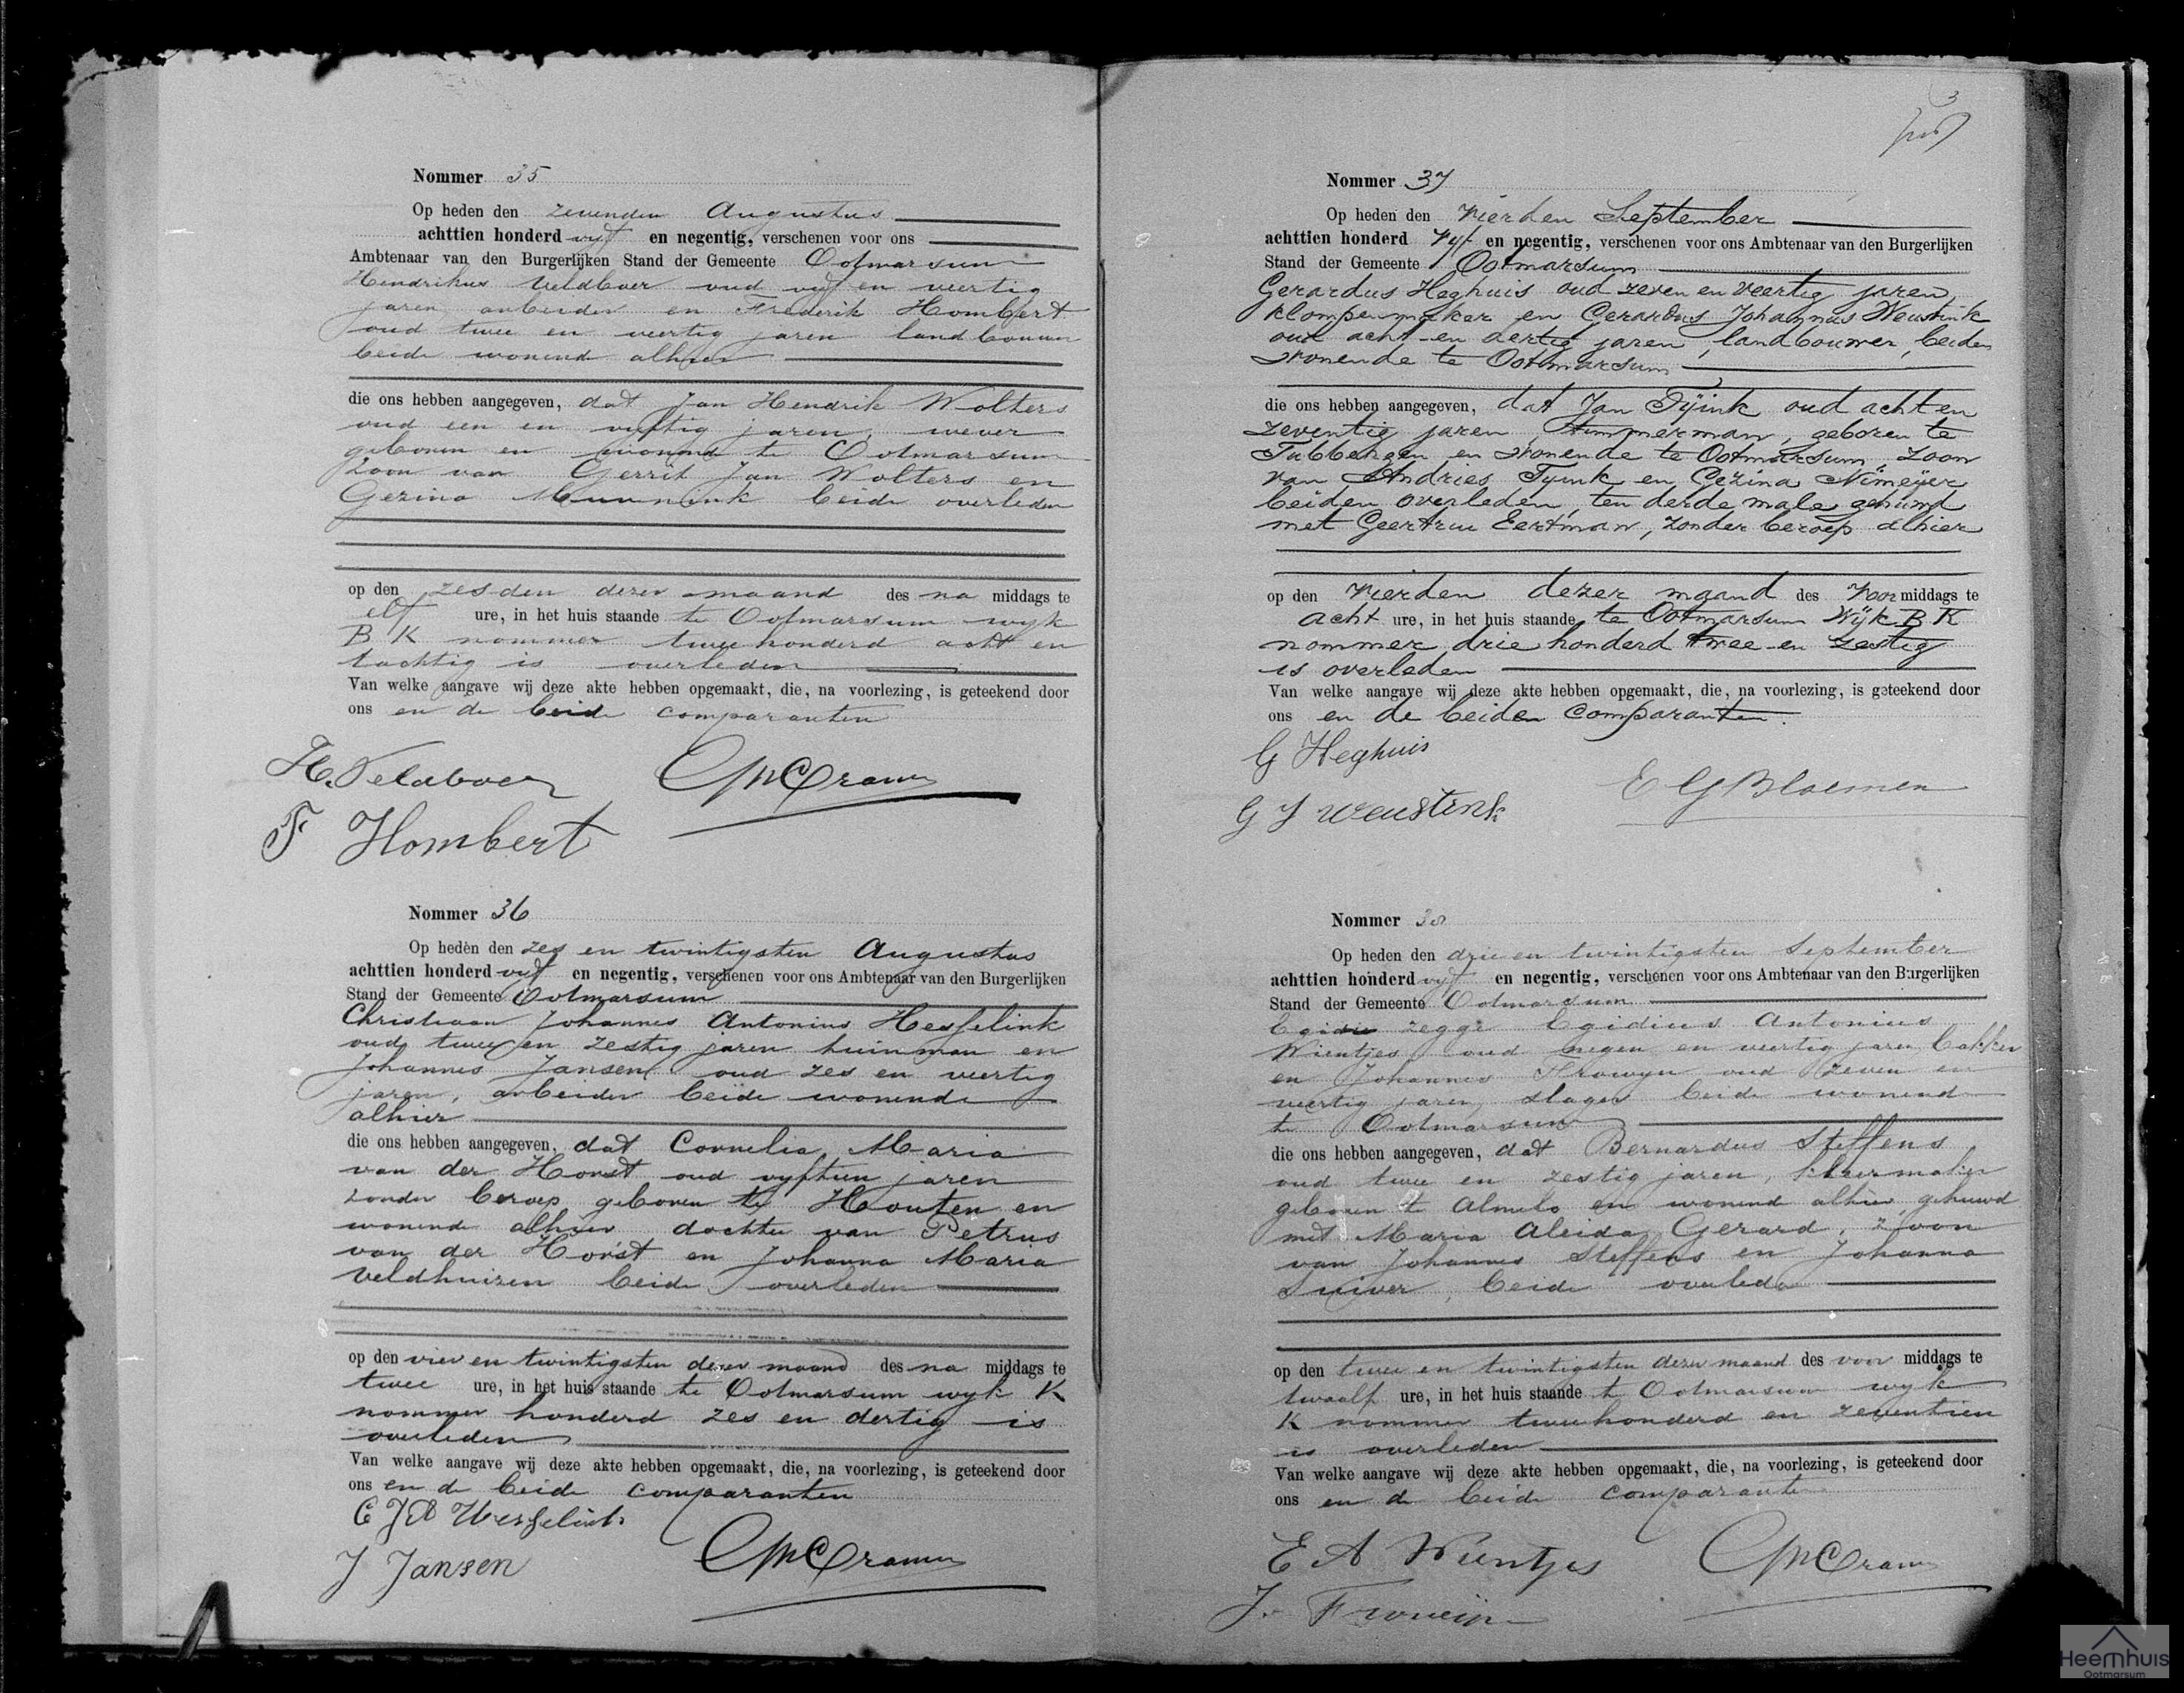 Nommer 35
Op heden den zevenden Augustus
achttien honderd vyf en negentig, verschenen voor ons
Ambtenaar van den Burgerlijken Stand der Gemeente Ootmarsum
Hendrikus Veldboer oud vyf en veertig
jaren arbeider en Frederik Hombert
oud twee en veertig jaren landbouwer
beide wonend alhier
die ons hebben aangegeven, dat Jan Hendrik Wolters
oud een en vyftig jaren, wever
geboren en wonend te Ootmarsum
zoon van Gerrit Jan Wolters en
Gezina Munnink beide overleden
op den zesden dezer maand des na middags te
elf ure, in het huis staande te Ootmarsum wyk
B K nommer twee honderd acht en
tachtig is overleden
Van welke aangave wij deze akte hebben opgemaakt, die, na voorlezing, is geteekend door
ons en de beide comparanten
H. Veldboer
F Hombert
Nommer 36
Op heden den zes en twintigsten Augustus
achttien honderd vyf en negentig, verschenen voor ons Ambtenaar van den Burgerlijken
Stand der Gemeente Ootmarsum
Christiaan Johannes Antonius Hesselink
oud twee en zestig jaren tuinman en
Johannes Jansen oud zes en veertig
jaren, arbeider beide wonende
alhier
die ons hebben aangegeven, dat Cornelia Maria
van der Horst oud vyftien jaren
zonder beroep geboren te Houten en
wonende alhier dochter van Petrus
van der Horst en Johanna Maria
Veldhuizen beide overleden
op den vier en twintigsten dezer maand des na middags te
twee ure, in het huis staande te Ootmarsum wyk K
nommer honderd zes en dertig is
overleden
Van welke aangave wij deze akte hebben opgemaakt, die, na voorlezing, is geteekend door
ons en de beide comparanten
C J A Hesselink
J Jansen
Nommer 37
Op heden den vierden September
achttien honderd vyf en negentig, verschenen voor ons Ambtenaar van den Burgerlijken
Stand der Gemeente Ootmarsum
Gerardus Heghuis oud zeven en veertig jaren,
klompenmaker en Gerardus Johannes Weustink
oud acht en dertig jaren, landbouwer, beiden
wonende te Ootmarsum
die ons hebben aangegeven, dat Jan Tijink oud acht en
zeventig jaren, timmerman, geboren te
Tubbergen en wonende te Ootmarsum, zoon
van Andries Tijink en Gezina Nimeijer
beiden overleden, ten derde male gehuwd
met Geertrui Eertman, zonder beroep alhier
op den vierden dezer maand des voor middags te
acht ure, in het huis staande te Ootmarsum Wijk B K
nommer drie honderd twee en zestig
is overleden
Van welke aangave wij deze akte hebben opgemaakt, die, na voorlezing, is geteekend door
ons en de beiden comparanten.
G Heghuis
E G Bloemen
G J Weustink
Nommer 38
Op heden den drie en twintigsten September
achttien honderd vyf en negentig, verschenen voor ons Ambtenaar van den Burgerlijken
Stand der Gemeente Ootmarsum
zegge Egidius Antonius
Wientjes oud negen en veertig jaren bakker
en Johannes Frowyn oud zeven en
veertig jaren, slager beide wonend
te Ootmarsum
die ons hebben aangegeven, dat Bernardus Steffens
oud twee en zestig jaren, kleermaker
geboren te Almelo en wonend alhier, gehuwd
met Maria Aleida Gerard, zoon
van Johannes Steffens en Johanna
Suiver, beide overleden
op den twee en twintigsten dezer maand des voor middags te
twaalf ure, in het huis staande te Ootmarsum wyk
K nommer twee honderd en zeventien
is overleden
Van welke aangave wij deze akte hebben opgemaakt, die, na voorlezing, is geteekend door
ons en de beide comparanten
E A Wientjes
J. Froweijn
Heemhuis
Ootmarsum